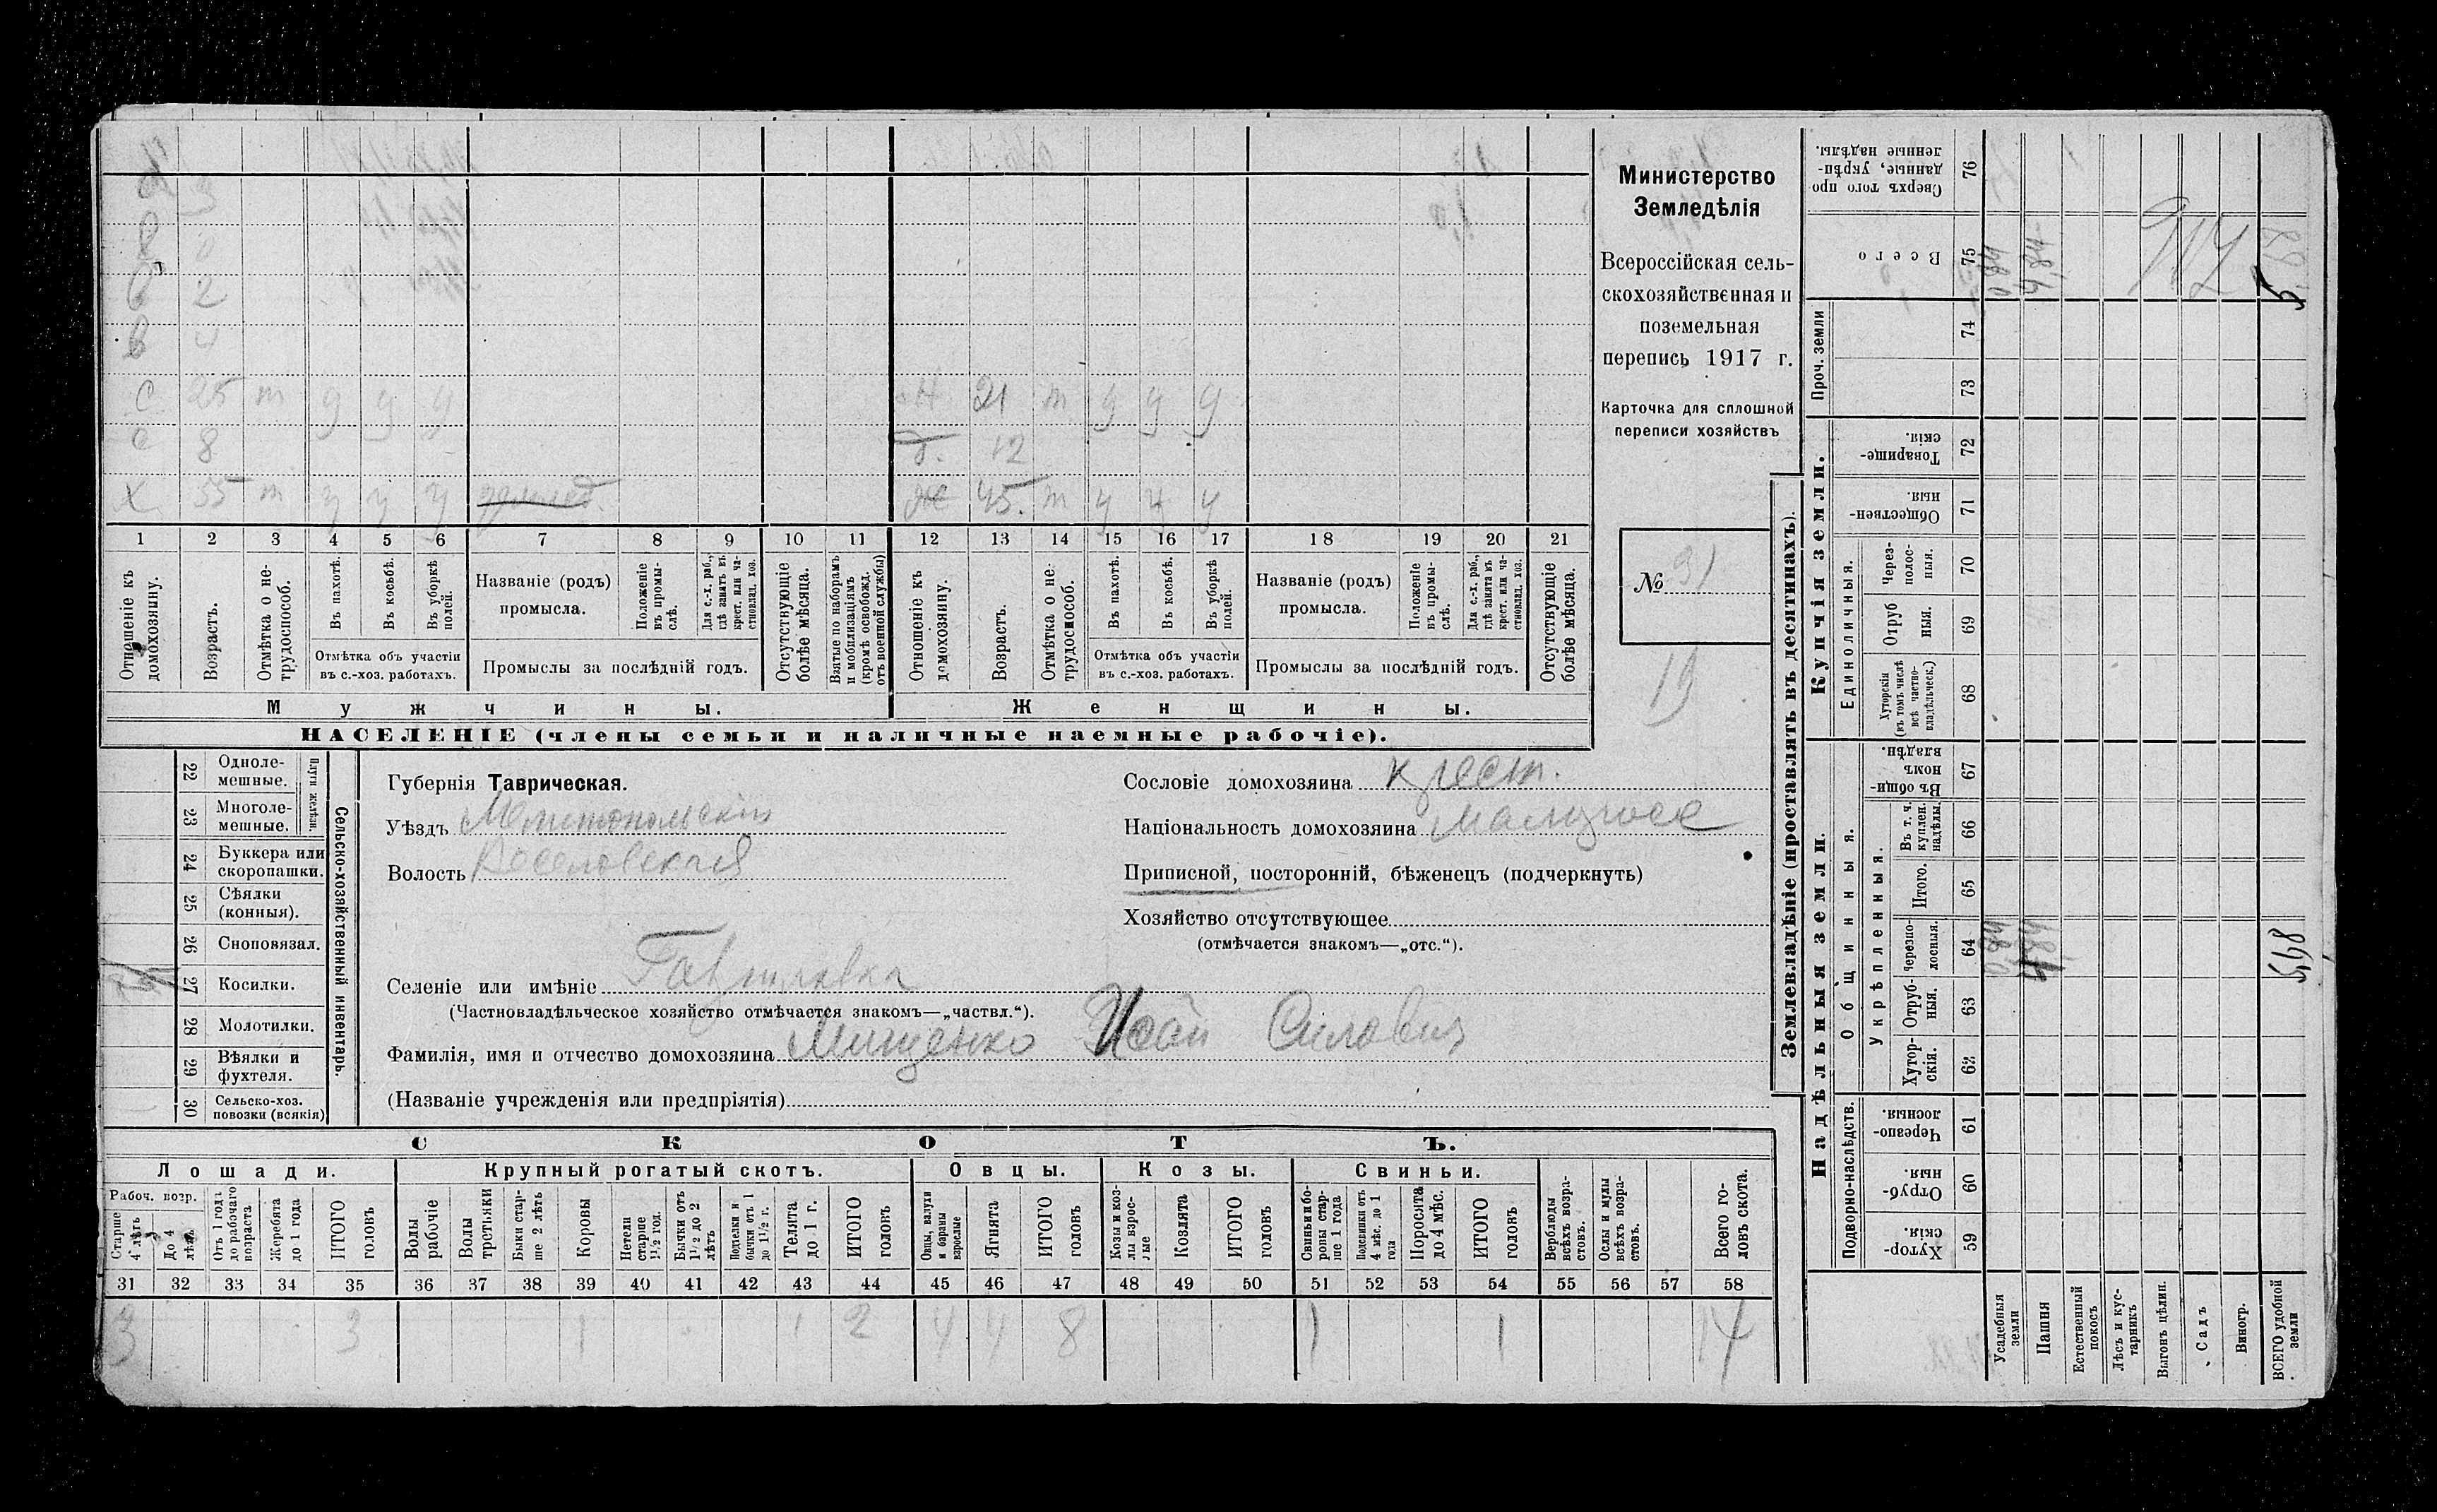 В 2
В 4
С 25 т у у у Н 21 т у у у
С 8 д. 12
Х 55 т у у у Ж 45. т у у у
1 2 3 4 5 6 7 8 9 10 11 12 13 14 15 16 17 18 19 20 21
Отношеніе къ домохозяину.
Возрастъ.
Отмѣтка о нетрудоспособ.
Въ пахотѣ.
Въ косьбѣ.
Въ уборкѣ полей.
Отмѣтка объ участіи
въ с.-хоз. работахъ.
Названіе (родъ)
промысла.
Положеніе въ промыслѣ.
Для с.-х. раб., гдѣ занятъ въ крест. или частновлад. хоз.
Промыслы за послѣдній годъ.
Отсутствующіе болѣе мѣсяца.
Взятые по наборамъ и мобилизаціямъ (кромѣ освобожд. отъ военной службы)
Отношеніе къ домохозяину.
Возрастъ.
Отмѣтка о нетрудоспособ.
Въ пахотѣ.
Въ косьбѣ.
Въ уборкѣ полей.
Отмѣтка объ участіи
въ с.-хоз. работахъ.
Названіе (родъ)
промысла.
Положеніе въ промыслѣ.
Для с.-х. раб., гдѣ занята въ крест. или частновлад. хоз.
Промыслы за послѣдній годъ.
Отсутствующіе болѣе мѣсяца.
Мужчины.
Женщины.
НАСЕЛЕНІЕ (члены семьи и наличные наемные рабочіе).
Министерство
Земледѣлія
Всероссійская сель-
скохозяйственная и
поземельная
перепись 1917 г.
Карточка для сплошной
переписи хозяйствъ
№ 31
19
Сельско-хозяйственный инвентарь.
Плуги желѣзн.
22 Одноле-
мешные.
23 Многоле-
мешные.
24 Буккера или
скоропашки.
25 Сѣялки
(конныя).
26 Сноповязал.
27 Косилки.
28 Молотилки.
29 Вѣялки и
фухтеля.
30 Сельско-хоз.
повозки (всякія)
Губернія Таврическая.
Уѣздъ Мелитопольскій
Волость Веселовская
Сословіе домохозяина крест.
Національность домохозяина малоросс
Приписной, посторонній, бѣженецъ (подчеркнуть)
Хозяйство отсутствующее
(отмѣчается знакомъ—„отс.“).
Селеніе или имѣніе Гавриловка
(Частновладѣльческое хозяйство отмѣчается знакомъ—„частвл.“).
Фамилія, имя и отчество домохозяина Мищенко Исай Силович
(Названіе учрежденія или предпріятія)
СКОТЪ.
Лошади. Крупный рогатый скотъ. Овцы. Козы. Свиньи.
Рабоч. возр.
Старше 4 лѣтъ
До 4 лѣтъ
Отъ 1 года до рабочаго возраста
Жеребята до 1 года
ИТОГО головъ
Волы рабочіе
Волы третьяки
Быки старше 2 лѣтъ
Коровы
Нетели старше 1½ год.
Бычки отъ 1½ до 2 лѣтъ
Подтелки и бычки отъ 1 до 1½ г.
Телята до 1 г.
ИТОГО головъ
Овцы, валухи и бараны взрослые
Ягнята
ИТОГО головъ
Козы и козлы взрослые
Козлята
ИТОГО головъ
Свиньи и боровы старше 1 года
Подсвинки отъ 4 мѣс. до 1 года
Поросята до 4 мѣс.
ИТОГО головъ
Верблюды всѣхъ возрастовъ.
Ослы и мулы всѣхъ возрастовъ.
Всего головъ скота.
31 32 33 34 35 36 37 38 39 40 41 42 43 44 45 46 47 48 49 50 51 52 53 54 55 56 57 58
3 3 1 1 2 4 4 8 1 1 14
Землевладѣніе (проставлять въ десятинахъ).
Купчія земли.
Надѣльныя земли.
Сверхъ того проданные, укрѣпленные надѣлы. 76
Всего 75 0,84 4,84
Проч. земли 74 73
Товарищескія. 72
Общественныя. 71
Единоличныя.
Черезполосныя. 70
Отрубныя. 69
Хуторскія (въ томъ числѣ всѣ частновладѣльческ.) 68
Общинныя.
Въ общинномъ владѣн. 67
Укрѣпленныя.
Въ т. ч. куплен. надѣлы. 66
Итого. 65
Черезполосныя. 64 0,84 4,84
Отрубныя. 63
Хуторскія. 62
Подворно-наслѣдств.
Черезполосныя. 61
Отрубныя. 60
Хуторскія. 59
Усадебныя земли
Пашня
Естественный покосъ
Лѣсъ и кустарникъ
Выгонъ цѣлин.
Садъ
Виногр.
ВСЕГО удобной земли